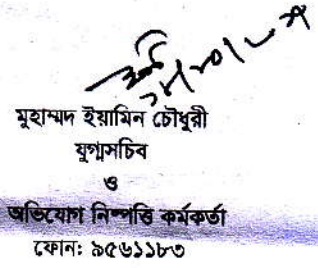 মুহাম্মদ ইয়ামিন চৌধুরী
যুগ্মসচিব
ও
অভিযোগ নিষ্পত্তি কর্মকর্তা
ফোন: ৯৫৬১১৮৩